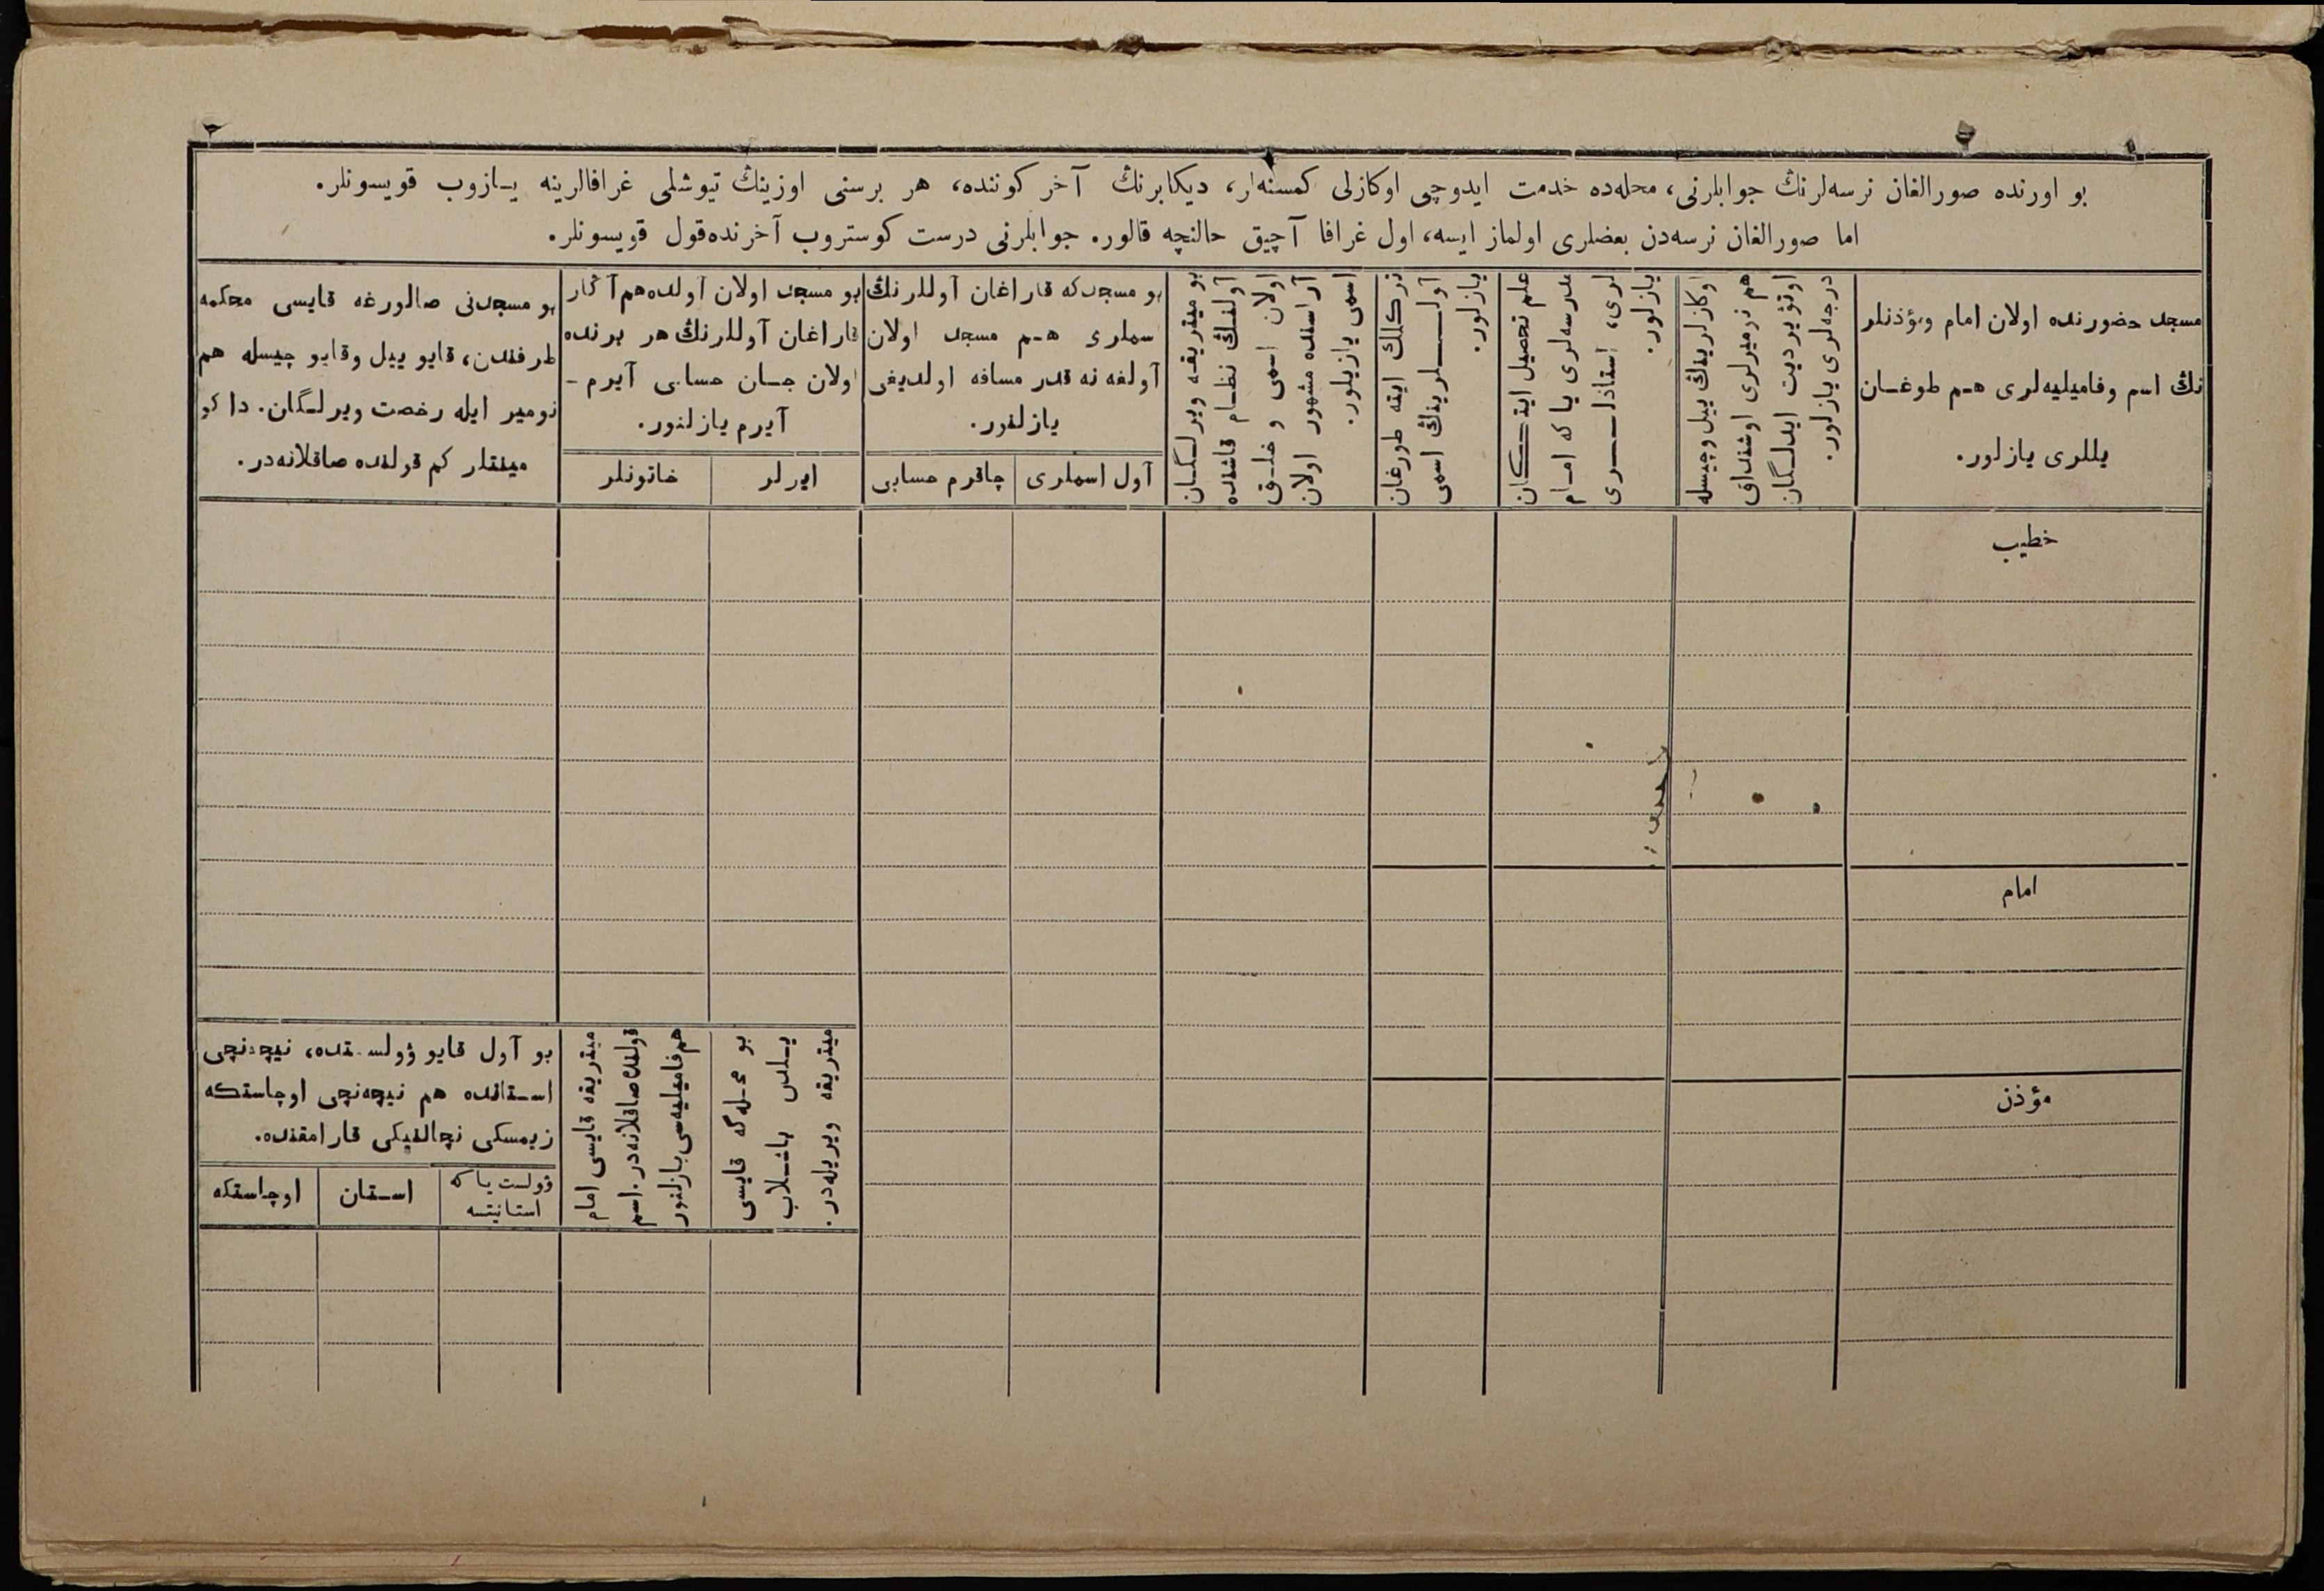 بو اورنده صورالغان نرسه‌لرنڭ جوابلرنی، محله‌ده خدمت ایدوچی اوكازلی كمسنه‌لر، دیكابرنڭ آخر كوننده، هر برسنی اوزینڭ تیوشلی غرافالارینه یازوب قویسونلر.
اما صورالغان نرسه‌دن بعضلری اولماز ایسه، اول غرافا آچیق حالنچه قالور. جوابلرنی درست كوستروب آخرنده قول قویسونلر.
مسجد حضورنده اولان امام و مؤذنلر
نڭ اسم وفامیلیه‌لری هم طوغان
یللری یازلور.
اوكازلرینڭ ییل وچیسله
هم نومیرلری اوشنداق
اوتؤیردیت ایدلگان
درجه‌لری یازلور.
علم تحصیل ایتكان
مدرسه‌لری یا كه امام
لری، استاذلری
یازلور.
نزكلك ایته طورغان
آوللرینڭ اسمی
یازلور.
بو میتریقه ویرلگان
آولنڭ نظام قاشنده
اولان اسمی و خلق
آراسنده مشهور اولان
اسمی یازیلور.
بو مسجدكه قاراغان آوللرنڭ
اسملری هم مسجد اولان
آولغه نه قدر مسافه اولدیغی
یازلنور.
آول اسملری
چاقرم حسابی
بو مسجد اولان آولده هم آڭار
قاراغان آوللرنڭ هر برنده
اولان جان حسابی آیرم -
آیرم یازلنور.
ایرلر
خاتونلر
بو مسجدنی صالورغه قایسی محكمه
طرفندن، قایو ییل وقایو چیسله هم
نومیر ایله رخصت ویرلگان. داكو
مینتلر كم قولنده صاقلانه‌در.
خطیب
امام
مؤذن
بو محله‌گه قایسی
یلدن باشلاب
میتریقه ویریله‌در.
میتریقه قایسی امام
قولنده صاقلانه‌در. اسم
هم فامیلیه‌سی یازلنور
بو آول قایو ؤولستده، نیچه‌نچی
استانده هم نیچه‌نچی اوچاستكه
زیمسكی نچالنیكی قارامقنده.
ؤولست یا كه
استانیتسه
استان
اوچاستكه